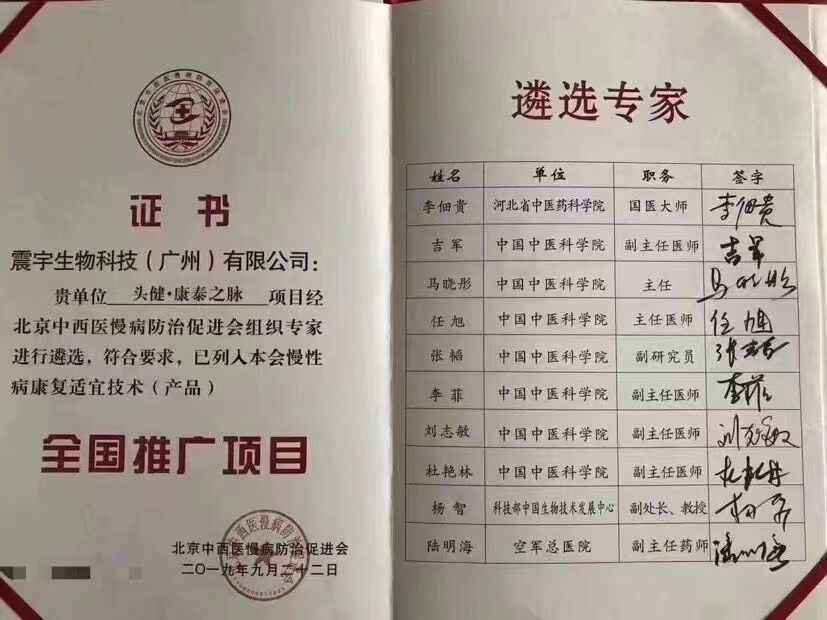 证书
震宇生物科技（广州）有限公司：
贵单位 头健·康泰之脉 项目经
北京中西医慢病防治促进会组织专家
进行遴选，符合要求，已列入本会慢性
病康复适宜技术（产品）
全国推广项目
北京中西医慢病防治促进会
二〇一九年九月二十二日
遴选专家
姓名 单位 职务 签字
李佃贵 河北省中医药科学院 国医大师 李佃贵
吉军 中国中医科学院 副主任医师 吉军
马晓彤 中国中医科学院 主任 马晓彤
任旭 中国中医科学院 主任医师 任旭
张韬 中国中医科学院 副研究员
李菲 中国中医科学院 副主任医师 李菲
刘志敏 中国中医科学院 副主任医师 刘志敏
杜艳林 中国中医科学院 副主任医师
杨智 科技部中国生物技术发展中心 副处长、教授
陆明海 空军总医院 副主任药师